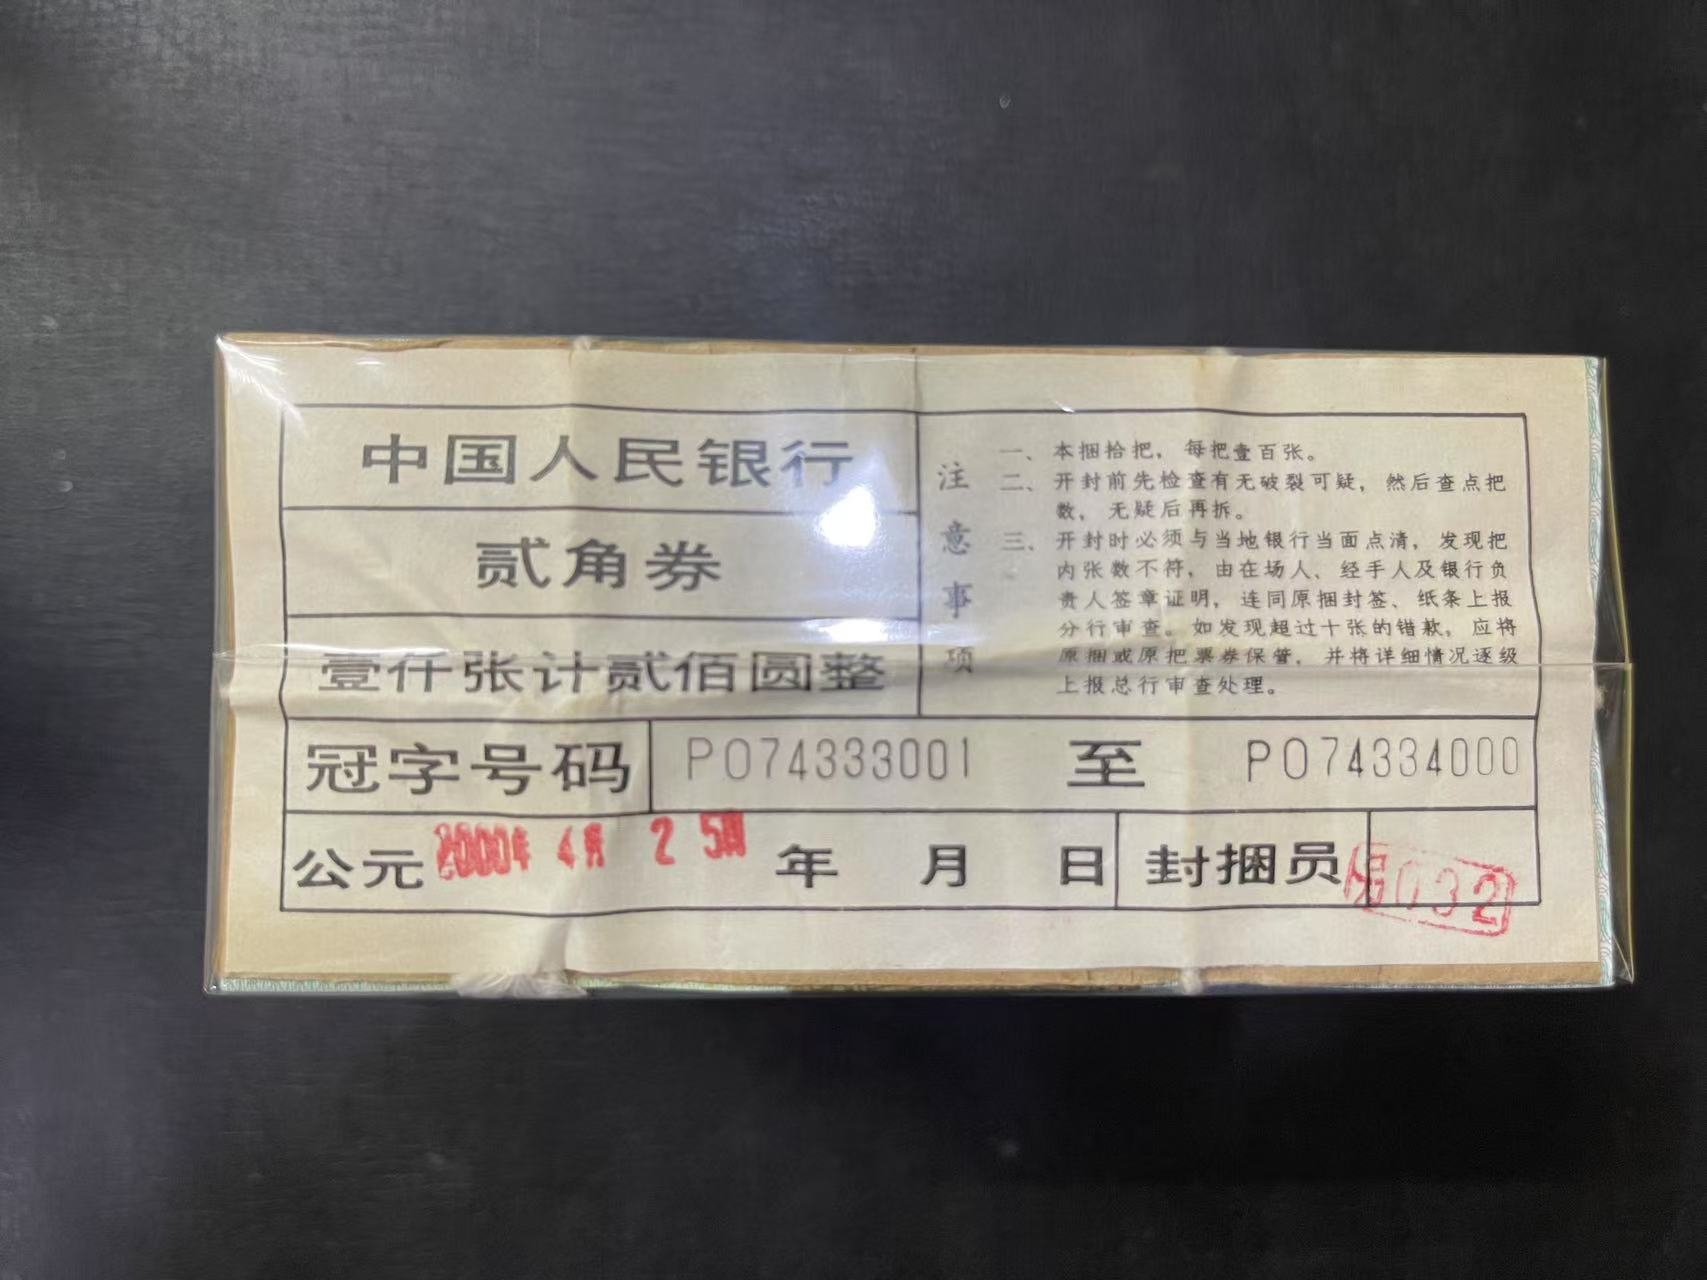 中国人民银行
贰角券
壹仟张计贰佰圆整
注意事项
一、本捆拾把，每把壹百张。
二、开封前先检查有无破裂可疑，然后查点把
数，无疑后再拆。
三、开封时必须与当地银行当面点清，发现把
内张数不符，由在场人、经手人及银行负
责人签章证明，连同原捆封签、纸条上报
分行审查。如发现超过十张的错款，应将
原捆或原把票券保管，并将详细情况逐级
上报总行审查处理。
冠字号码 PO74333001 至 PO74334000
公元 2000年 4月 25日 年 月 日 封捆员 032